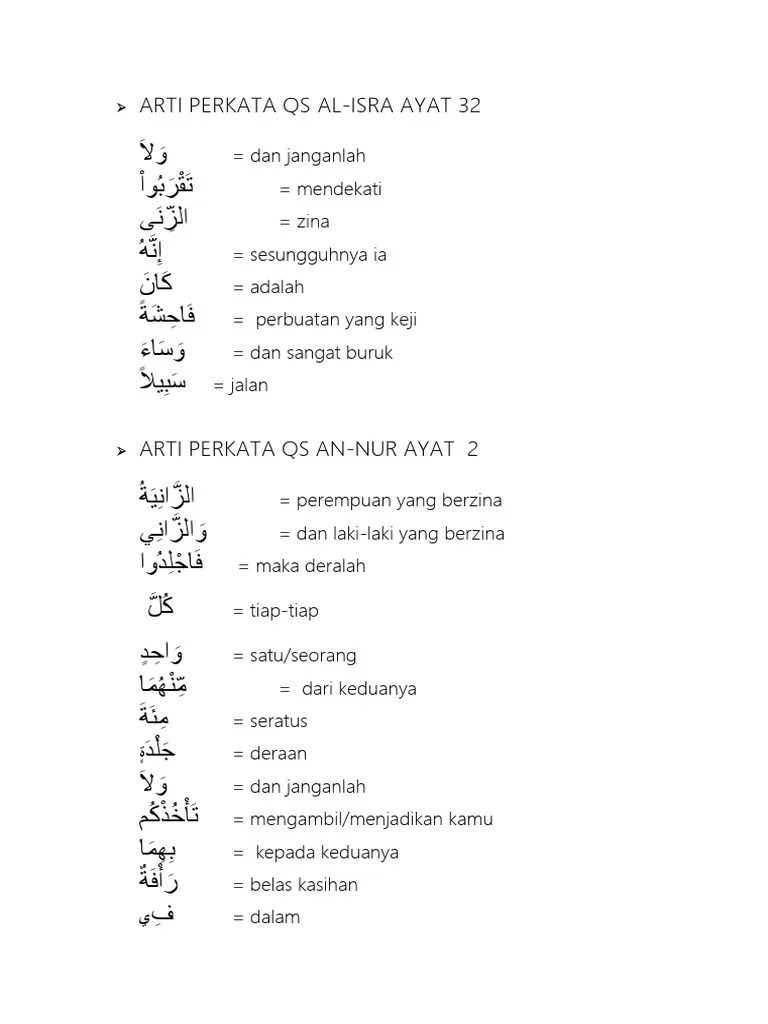 ➢ ARTI PERKATA QS AL-ISRA AYAT 32
وَلاَ = dan janganlah
تَقْرَبُواْ = mendekati
الزِّنَى = zina
إِنَّهُ = sesungguhnya ia
كَانَ = adalah
فَاحِشَةً = perbuatan yang keji
وَسَاءَ = dan sangat buruk
سَبِيلاً = jalan
➢ ARTI PERKATA QS AN-NUR AYAT 2
الزَّانِيَةُ = perempuan yang berzina
وَالزَّانِي = dan laki-laki yang berzina
فَاجْلِدُوا = maka deralah
كُلَّ = tiap-tiap
وَاحِدٍ = satu/seorang
مِّنْهُمَا = dari keduanya
مِئَةَ = seratus
جَلْدَةٍ = deraan
وَلاَ = dan janganlah
تَأْخُذْكُم = mengambil/menjadikan kamu
بِهِمَا = kepada keduanya
رَأْفَةٌ = belas kasihan
فِي = dalam